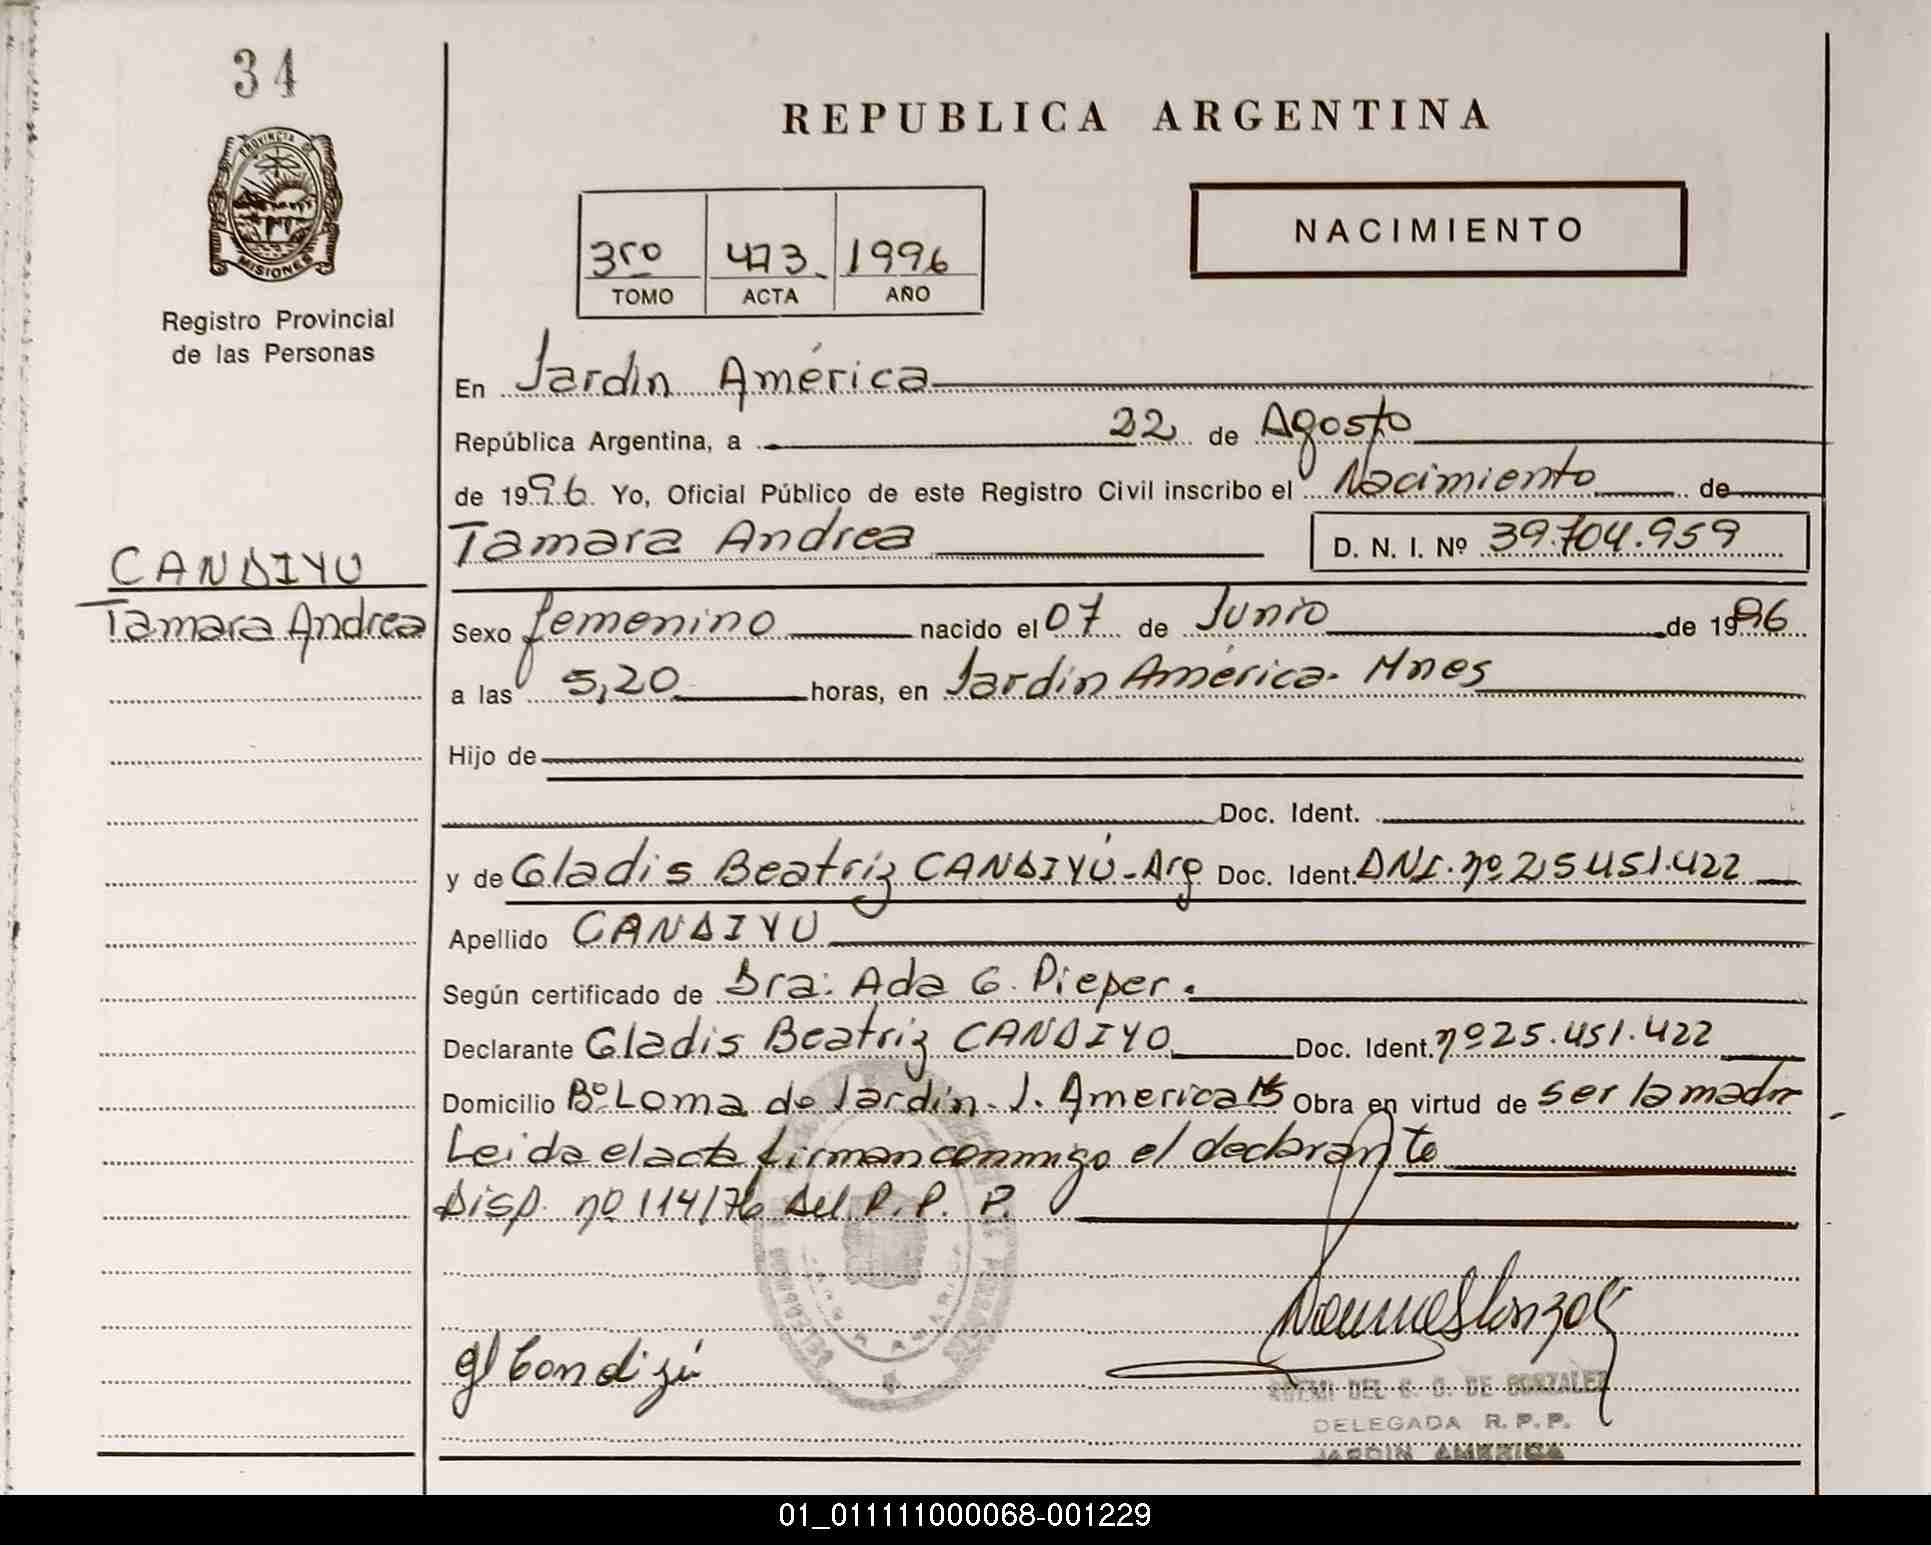 34
REPUBLICA ARGENTINA
PROVINCIA DE
MISIONES
Registro Provincial
de las Personas
NACIMIENTO
3ro 473 1996
TOMO ACTA AÑO
En Jardín América
República Argentina, a 22 de Agosto
de 1996. Yo, Oficial Público de este Registro Civil inscribo el Nacimiento de
Tamara Andrea D. N. I. Nº 39.704.959
CANDIYU
Tamara Andrea
Sexo femenino nacido el 07 de Junio de 1996
a las 5,20 horas, en Jardín América. Mnes
Hijo de
Doc. Ident.
y de Gladis Beatríz CANDIYÚ-Arg Doc. Ident. DNI. nº 25451.422
Apellido CANDIYU
Según certificado de Dra: Ada G. Pieper.
Declarante Gladis Beatriz CANDIYO Doc. Ident. nº 25.451.422
Domicilio Bº Loma de Jardín. J. America Ms Obra en virtud de ser la madre
Leida el acta firman conmigo el declarante
Disp. nº 114/76 del R. P. P.
gl Candiyú
DEL C. G. DE GONZALEZ
DELEGADA R. P. P.
JARDIN AMERICA
01_011111000068-001229